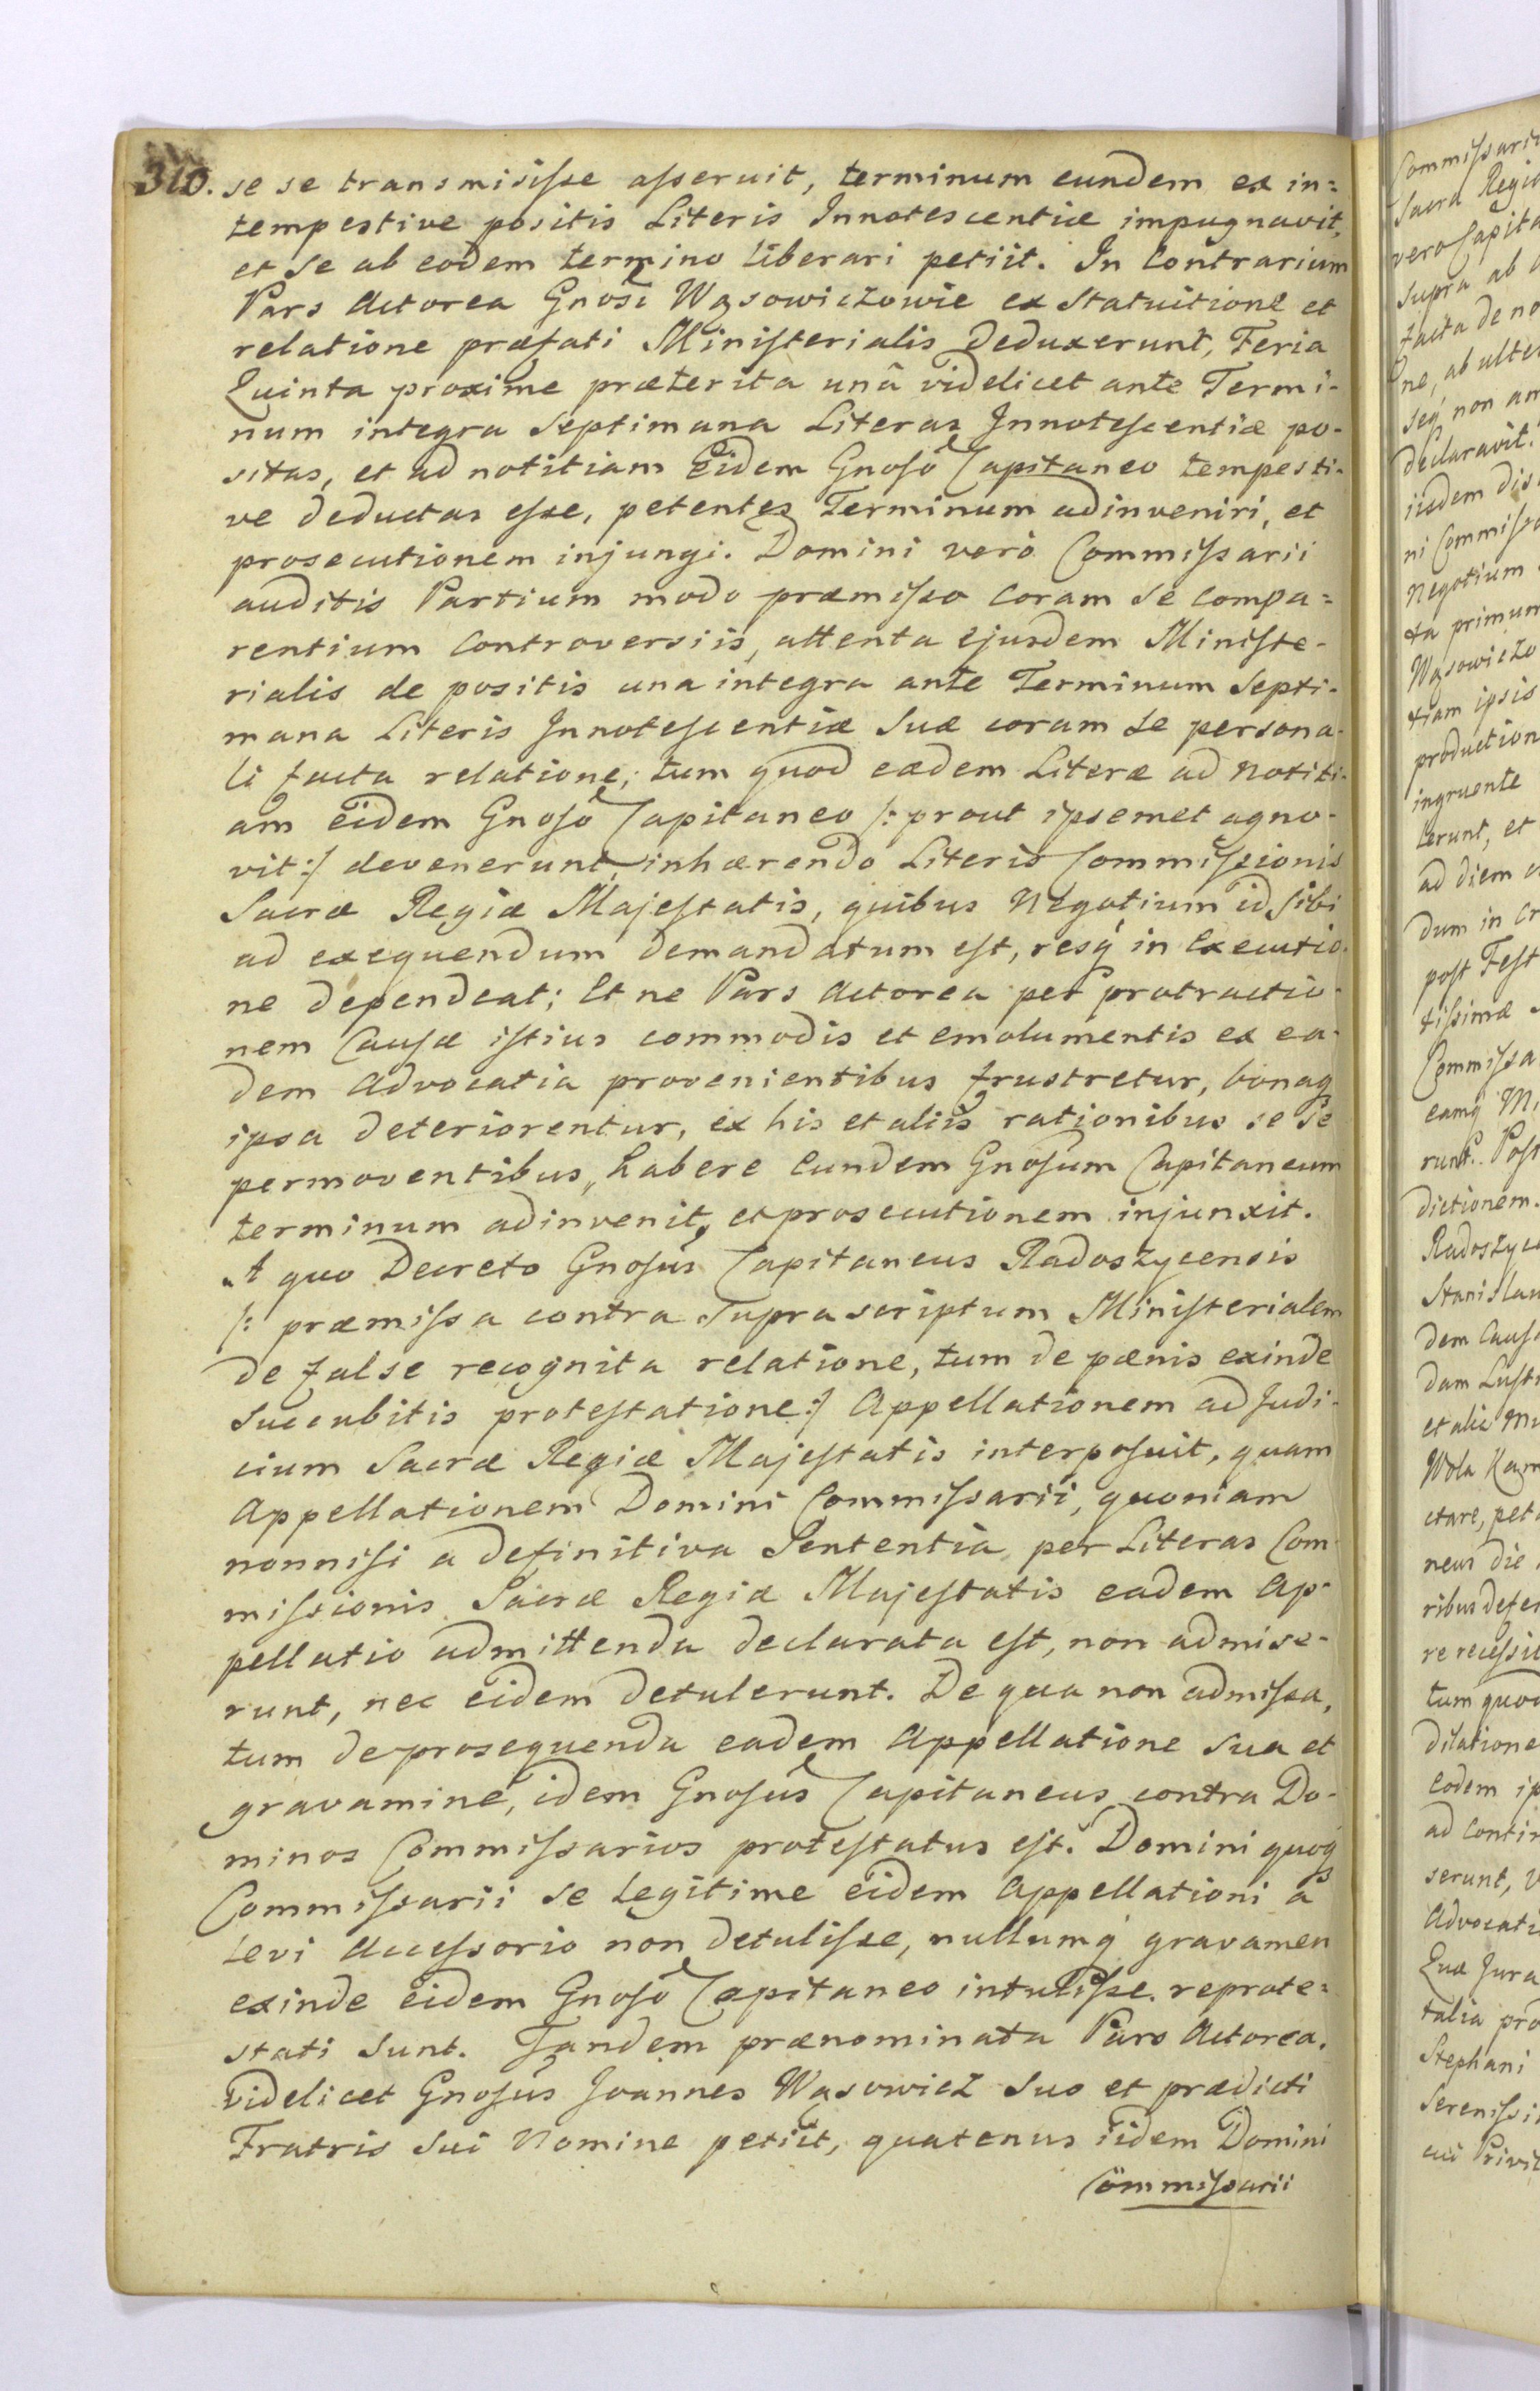 310. se se transmisisse asseruit, terminum eundem ex in=
tempestive positis Literis Innotescentiæ impugnavit,
et se ab eodem termino liberari petiit. In Contrarium
Pars Actorea Gnosi Wąsowiczowie ex Statuitione et
relatione præfati Ministerialis deduxerunt, Feria
Quinta proxime præterita unâ videlicet ante Termi-
num integra Septimana Literas Innotescentiæ po-
sitas, et ad notitiam Eidem Gnoso Capitaneo tempesti-
ve deductas esse, petentes Terminum adinveniri, et
prosecutionem injungi. Domini verò Commissarii
auditis Partium modo præmisso Coram Se Compa=
rentium Controversiis, attenta ejusdem Ministe-
rialis de positis una integra ante Terminum Septi-
mana Literis Innotescentiæ Suæ coram se persona-
li facta relatione, tum quod eædem Literæ ad notiti-
am eidem Gnoso Capitaneo /: prout ipsemet agno-
vit :/ devenerunt, inhærendo Literis Commissionis
Sacræ Regiæ Majestatis, quibus Negotium id sibi
ad exequendum demandatum est, resq́ in Executio-
ne dependeat; Et ne Pars Actorea per protractio-
nem Causæ istius commodis et emolumentis ex ea-
dem Advocatia provenientibus frustretur, bonaq
ipsa deteriorentur, ex his et aliis rationibus se se
permoventibus, habere Eundem Gnosum Capitaneum
terminum adinvenit, et prosecutionem injunxit.
A quo Decreto Gnosus Capitaneus Radoszycensis
/: præmissa contra supra scriptum Ministerialem
de false recognita relatione, tum de pænis exinde
succubitis protestatione :/ Appellationem ad Judi-
cium Sacræ Regiæ Majestatis interposuit, quam
Appellationem Domini Commissarii, quoniam
nonnisi a definitiva Sententia per Literas Com-
missionis Sacræ Regiæ Majestatis eadem Ap-
pellatio admittenda declarata est, non admise-
runt, nec eidem detulerunt. De qua non admissa,
tum de prosequenda eadem Appellatione sua et
gravamine, idem Gnosus Capitaneus contra Do-
minos Commissarios protestatus est. Domini quoq́
Commissarii se legitime eidem Appellationi à
Levi Accessorio non detulisse, nullumq́ gravamen
exinde eidem Gnoso Capitaneo intulisse. reprote=
stati sunt. Tandem prænominata Pars Actorea.
videlicet Gnosus Joannes Wąsowicz suo et prædicti
Fratris sui Nomine petiit, quatenus iidem Domini
Commissarii
Commissarii
Sacra Regia
vero Capita
supra ab
facta de no
ne, ab ulte
seq́ non am
declaravit.
iisdem dis
ni Commissa
Negotium
ta primum
Wąsowiczo
tiam ipsis
production
ingruente
lerunt, et
ad diem
dum in Cr
post Fest
tissimæ
Commissa
eamq́ Mi
runt. Post
dictionem.
Radoszyc
Stanislau
dem Causa
dam Lust
et alia
Wola Kam
ctare, pet
neus die
ribus defe
re recessi
tum quod
dilatione
Eodem ip
ad Contin
serunt, v
Advocati
Quæ Jura
talia pro
Stephani
Serenissi
cui Privil